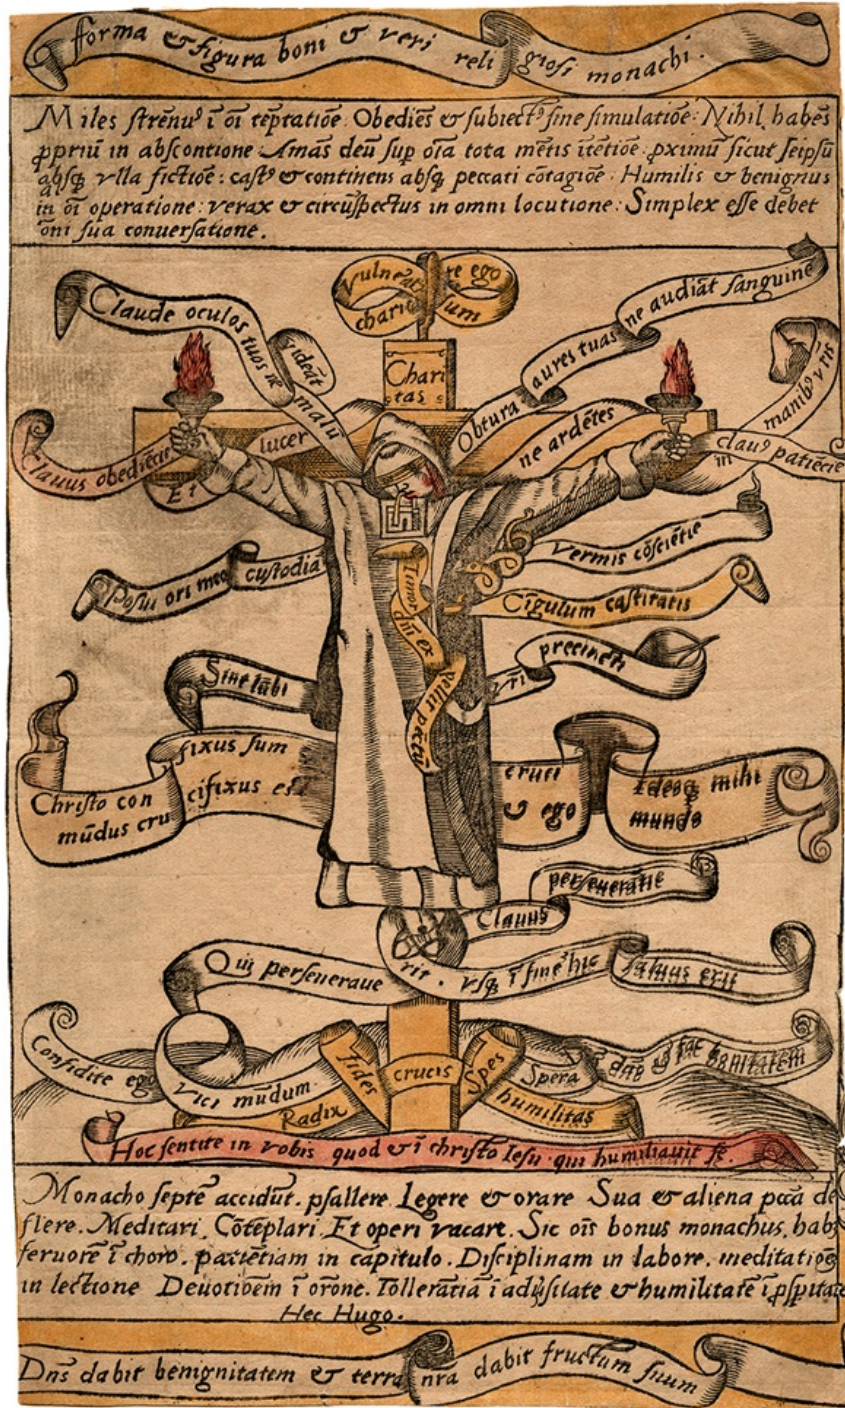 forma & figura boni & veri religiosi monachi.
Miles strēnuꝰ ī oī tēptatiōe. Obediēs & subiectꝰ sine simulatiōe: Nihil habēs
ꝓpriū in absconsione. Amās deū sup oīa tota mētis ītētiōe. ꝓximū sicut seipsū
absqꝫ vlla fictiōe: castꝰ & continens absqꝫ peccati cōtagiōe. Humilis & benignus
in oī operatione: verax & circūspectus in omni locutione: Simplex esse debet
oni sua conuersatione.
Vulnerate ego
charitatis sum
Charitas
Claude oculos tuos ne videāt malū
Obtura aures tuas ne audiāt sanguinē
Clauus obediēcie
clauꝰ patiēcie
Et lucer
ne ardētes in manibꝰ vr̄is
Posui ori meo custodiā
Vermis cōsciētie
Cīgulum castitatis
Timor dn̄i expellit pctū
Sint lūbi vr̄i precincti
Christo confixus sum cruci Ideoqꝫ mihi
mūdus crucifixus est & ego mundo
Clauus perseuerātie
Qui perseueraue rit. vsqꝫ ī finē hic saluus erit
Confidite ego vici mūdum.
Fides
crucis
Spes
Spera ī dn̄o & fac bonitatem
Radix
humilitas
Hoc sentite in vobis quod & ī christo Iesu qui humiliauit se.
Monacho septē accidūt. psallere Legere & orare Sua & aliena pccā de
flere. Meditari. Cōtēplari Et operi vacare. Sic oīs bonus monachus. habꝫ
feruorē ī choro. patiētiam in capitulo. Disciplinam in labore. meditatiōē
in lectione Deuotiōem ī orōne. Tollerātiā ī adu̓sitate & humilitatē ī ꝓspitate
Hec Hugo.
Dn̄s dabit benignitatem & terra nr̄a dabit fructum suum